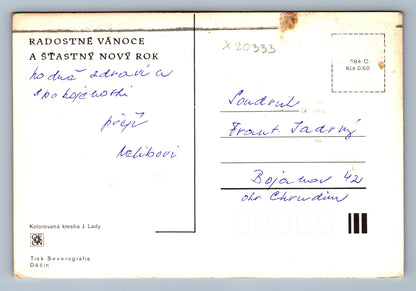 RADOSTNÉ VÁNOCE
A ŠŤASTNÝ NOVÝ ROK
hodně zdraví a
spokojenosti
přejí
Kolorovaná kresba J. Lady
Tisk Severografia
Děčín
X20333
Kčs 0,60
Soudruh
Frant.
Bojanov 42
okr. Chrudim